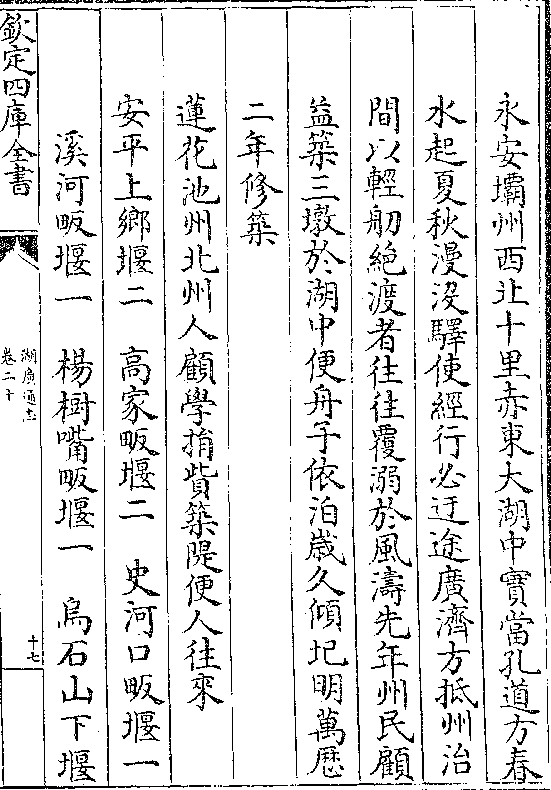 永安壩州西北十里赤東大湖中實當孔道方春
水起夏秋漫没驛使經行必迂途廣濟方抵州治
間以輕舠絶渡者往往覆溺於風濤先年州民顧
益築三墩於湖中便舟子依泊歲久傾圮明萬厯
二年修築
蓮花池州北州人顧學捐貲築隄便人往來
安平上鄉堰二　高家畈堰二　史河口畈堰一
溪河畈堰一　楊樹嘴畈堰一　烏石山下堰
欽定四庫全書
湖廣通志
卷二十
十七